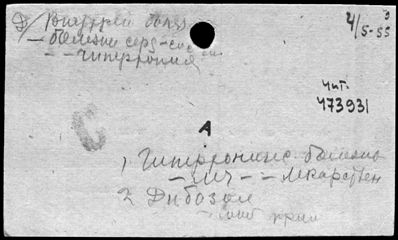 Внутрен болез
– болезни серд-сосуд
– – гипертония
4/5-55
Чит.
473931
С
А
1, Гипертонич. болезнь
– леч – – лекарствен
2 Дибазол